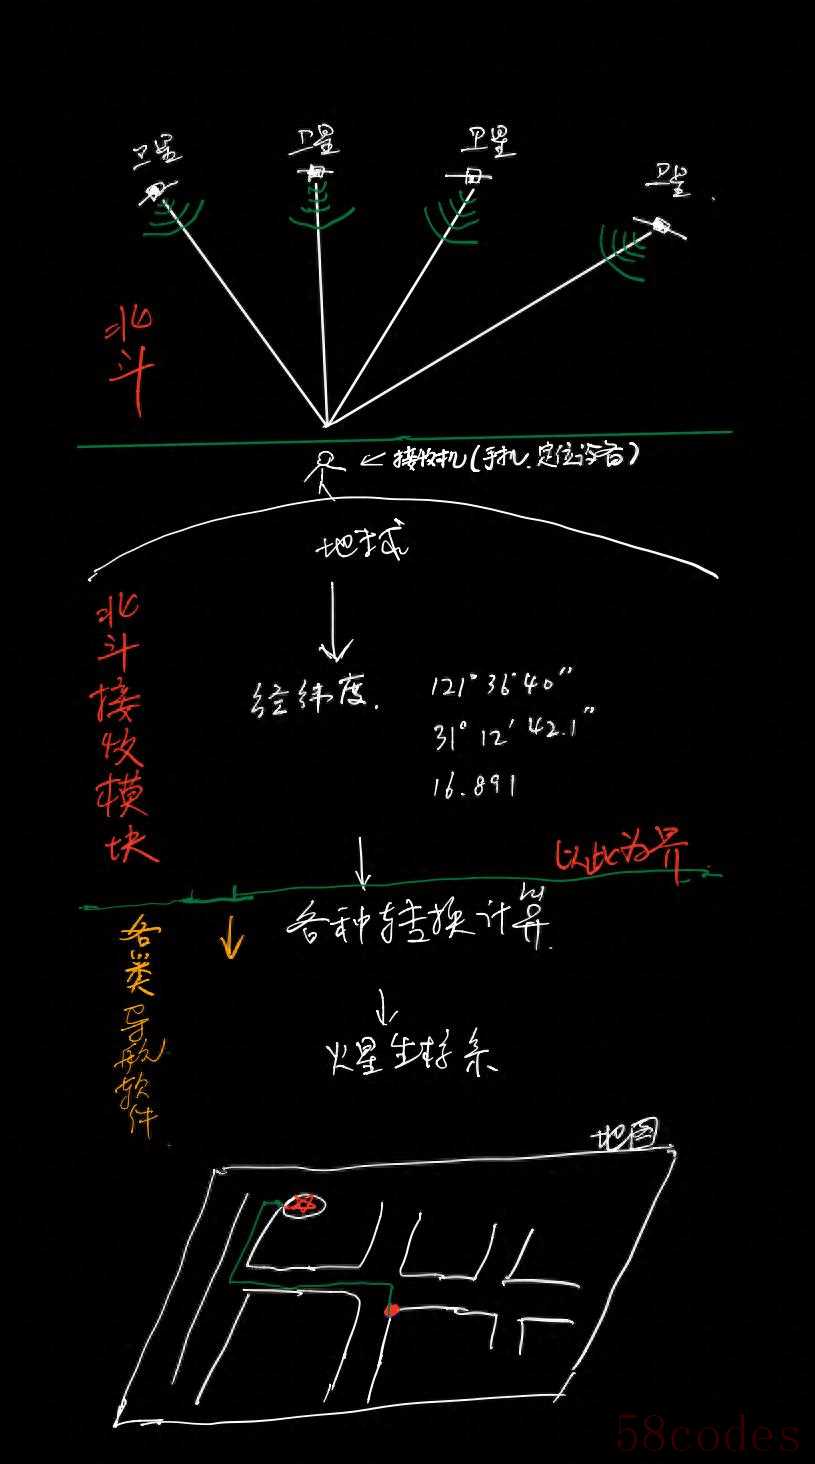 卫星
卫星
卫星
卫星
北斗
接收机(手机.定位设备)
地球
北斗接收模块
经纬度.
121°36'40"
31°12'42.1"
16.891
以此为界
各类导航软件
各种转换计算.
火星坐标系
地图
58codes